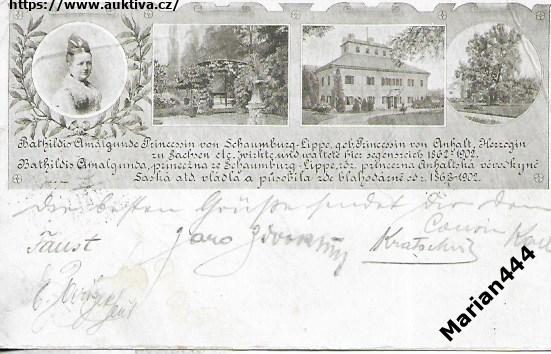 https://www.auktiva.cz/
Bathildis Amalgunde Princessin von Schaumburg-Lippe, geb. Princessin von Anhalt, Herzogin
zu Sachsen etc. wirkte und waltete hier segensreich 1862-1902.
Bathildis Amalgunda, princezna ze Schaumburg-Lippe, roz. princezna Anhaltská vévodkyně
Saská atd. vládla a působila zde blahodárně od r. 1862-1902.
Die besten Grüße sendet Dir Dein
Cousin Karl
Faust
Jaro
Kratschvil
Marian444